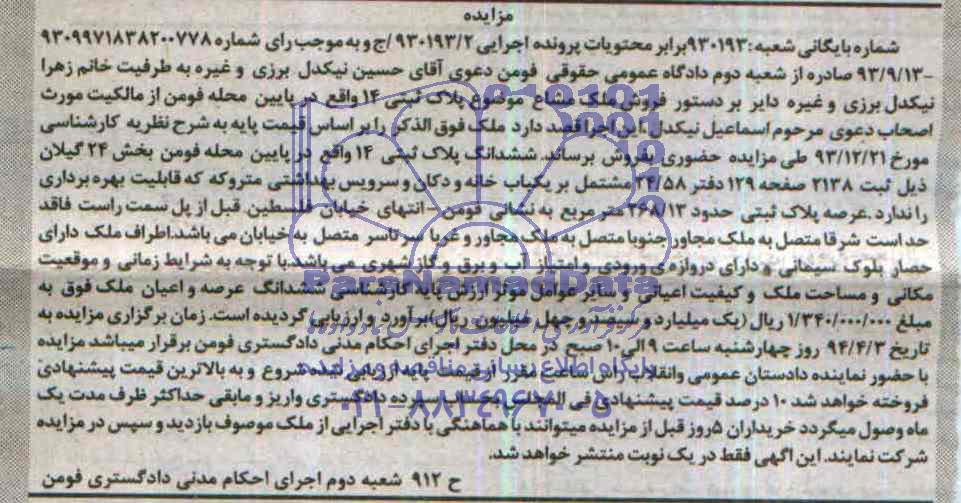 مزایده
شماره بایگانی شعبه: ۹۳۰۱۹۳ برابر محتویات پرونده اجرایی ۹۳۰۱۹۳/۲/ج و به موجب رای شماره ۹۳۰۹۹۷۱۸۳۸۲۰۰۷۷۸
-۹۳/۹/۱۳ صادره از شعبه دوم دادگاه عمومی حقوقی فومن دعوی آقای حسین نیکدل برزی و غیره به طرفیت خانم زهرا
نیکدل برزی و غیره دایر بر دستور فروش ملک مشاع موضوع پلاک ثبتی ۱۴ واقع در پایین محله فومن از مالکیت مورث
اصحاب دعوی مرحوم اسماعیل نیکدل، این اجرا قصد دارد ملک فوق الذکر را بر اساس قیمت پایه به شرح نظریه کارشناسی
مورخ ۹۳/۱۲/۲۱ طی مزایده حضوری بفروش برساند. ششدانگ پلاک ثبتی ۱۴ واقع در پایین محله فومن بخش ۲۴ گیلان
ذیل ثبت ۲۱۳۸ صفحه ۱۲۹ دفتر ۲۴/۵۸ مشتمل بر یکباب خانه و دکان و سرویس بهداشتی متروکه که قابلیت بهره برداری
را ندارد. عرصه پلاک ثبتی حدود ۲۶۸/۱۳ متر مربع به نشانی فومن -انتهای خیابان فلسطین قبل از پل سمت راست فاقد
حد است شرقا متصل به ملک مجاور جنوبا متصل به ملک مجاور و غربا سرتاسر متصل به خیابان می باشد. اطراف ملک دارای
حصار بلوک سیمانی و دارای دروازه ی ورودی و امتیاز آب و برق و گاز شهری می باشد. با توجه به شرایط زمانی و موقعیت
مکانی و مساحت ملک و کیفیت اعیانی و سایر عوامل موثر ارزش پایه کارشناسی ششدانگ عرصه و اعیان ملک فوق به
مبلغ ۱/۳۴۰/۰۰۰/۰۰۰ ریال (یک میلیارد و سیصد و چهل میلیون ریال) برآورد و ارزیابی گردیده است. زمان برگزاری مزایده به
تاریخ ۹۴/۴/۳ روز چهارشنبه ساعت ۹ الی ۱۰ صبح در محل دفتر اجرای احکام مدنی دادگستری فومن برقرار میباشد مزایده
با حضور نماینده دادستان عمومی وانقلاب راس ساعت مقرر از قیمت پایه ارزیابی شده شروع و به بالاترین قیمت پیشنهادی
فروخته خواهد شد ۱۰ درصد قیمت پیشنهادی فی المجلس به حساب سپرده دادگستری واریز و مابقی حداکثر ظرف مدت یک
ماه وصول میگردد خریداران ۵ روز قبل از مزایده میتوانند با هماهنگی با دفتر اجرایی از ملک موصوف بازدید و سپس در مزایده
شرکت نمایند. این اگهی فقط در یک نوبت منتشر خواهد شد.
ح ۹۱۲ شعبه دوم اجرای احکام مدنی دادگستری فومن
ParsNamadData
پایگاه اطلاع رسانی مناقصه و مزایده
۰۲۱-۸۸۳۴۹۶۷۰-۵